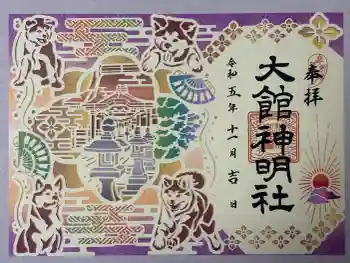 奉拝
大館神明社
令和五年十一月吉日